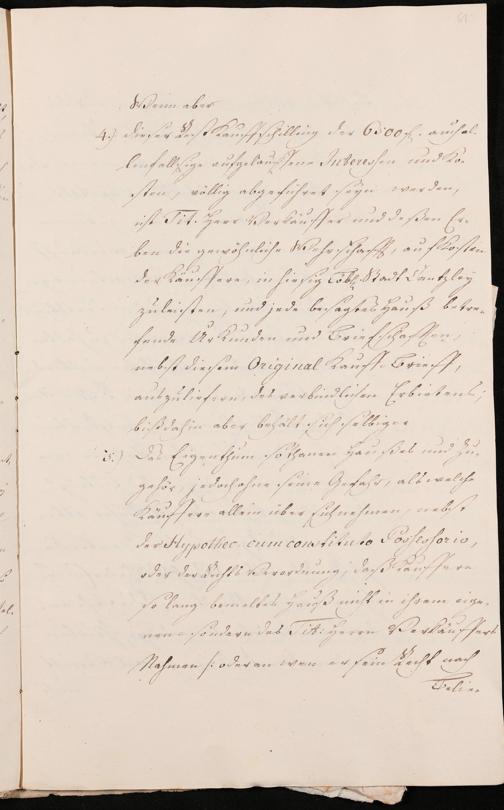 61
Wenn aber
4.) dieser Rest Kauffschilling der 6500 f. auch al-
lenfallsige aufgelauffene Interessen und Ko-
sten, völlig abgeführet seyn werden,
ist Tit. Herr Verkäuffer und deßen Er-
ben die gewöhnliche Wehrschafft, auf Kosten
der Käuffere, in hiesig Löbl. Stadt Cantzley
zuleisten, und jede besagtes Hauß betre-
fende Urkunden und Briefschafften,
nebst diesem Original Kauff-Brieff,
auszuliefern, des verbindlichen Erbietens;
biß dahin aber behält sich selbiger
5.) Das Eigenthum sothanen Haußes und Zu-
gehör, jedoch ohne seine Gefahr, als welche
Käuffere allein über sich nehmen, nebst
der Hypothec cum constituto Possessorio,
oder der Rechts Verordnung, daß Käuffere
so lang bemeltes Hauß nicht in ihrem eige-
nen sondern des Tit. Herrn Verkäuffers
Nahmen /: oder an wen er sein Recht nach
Belie-